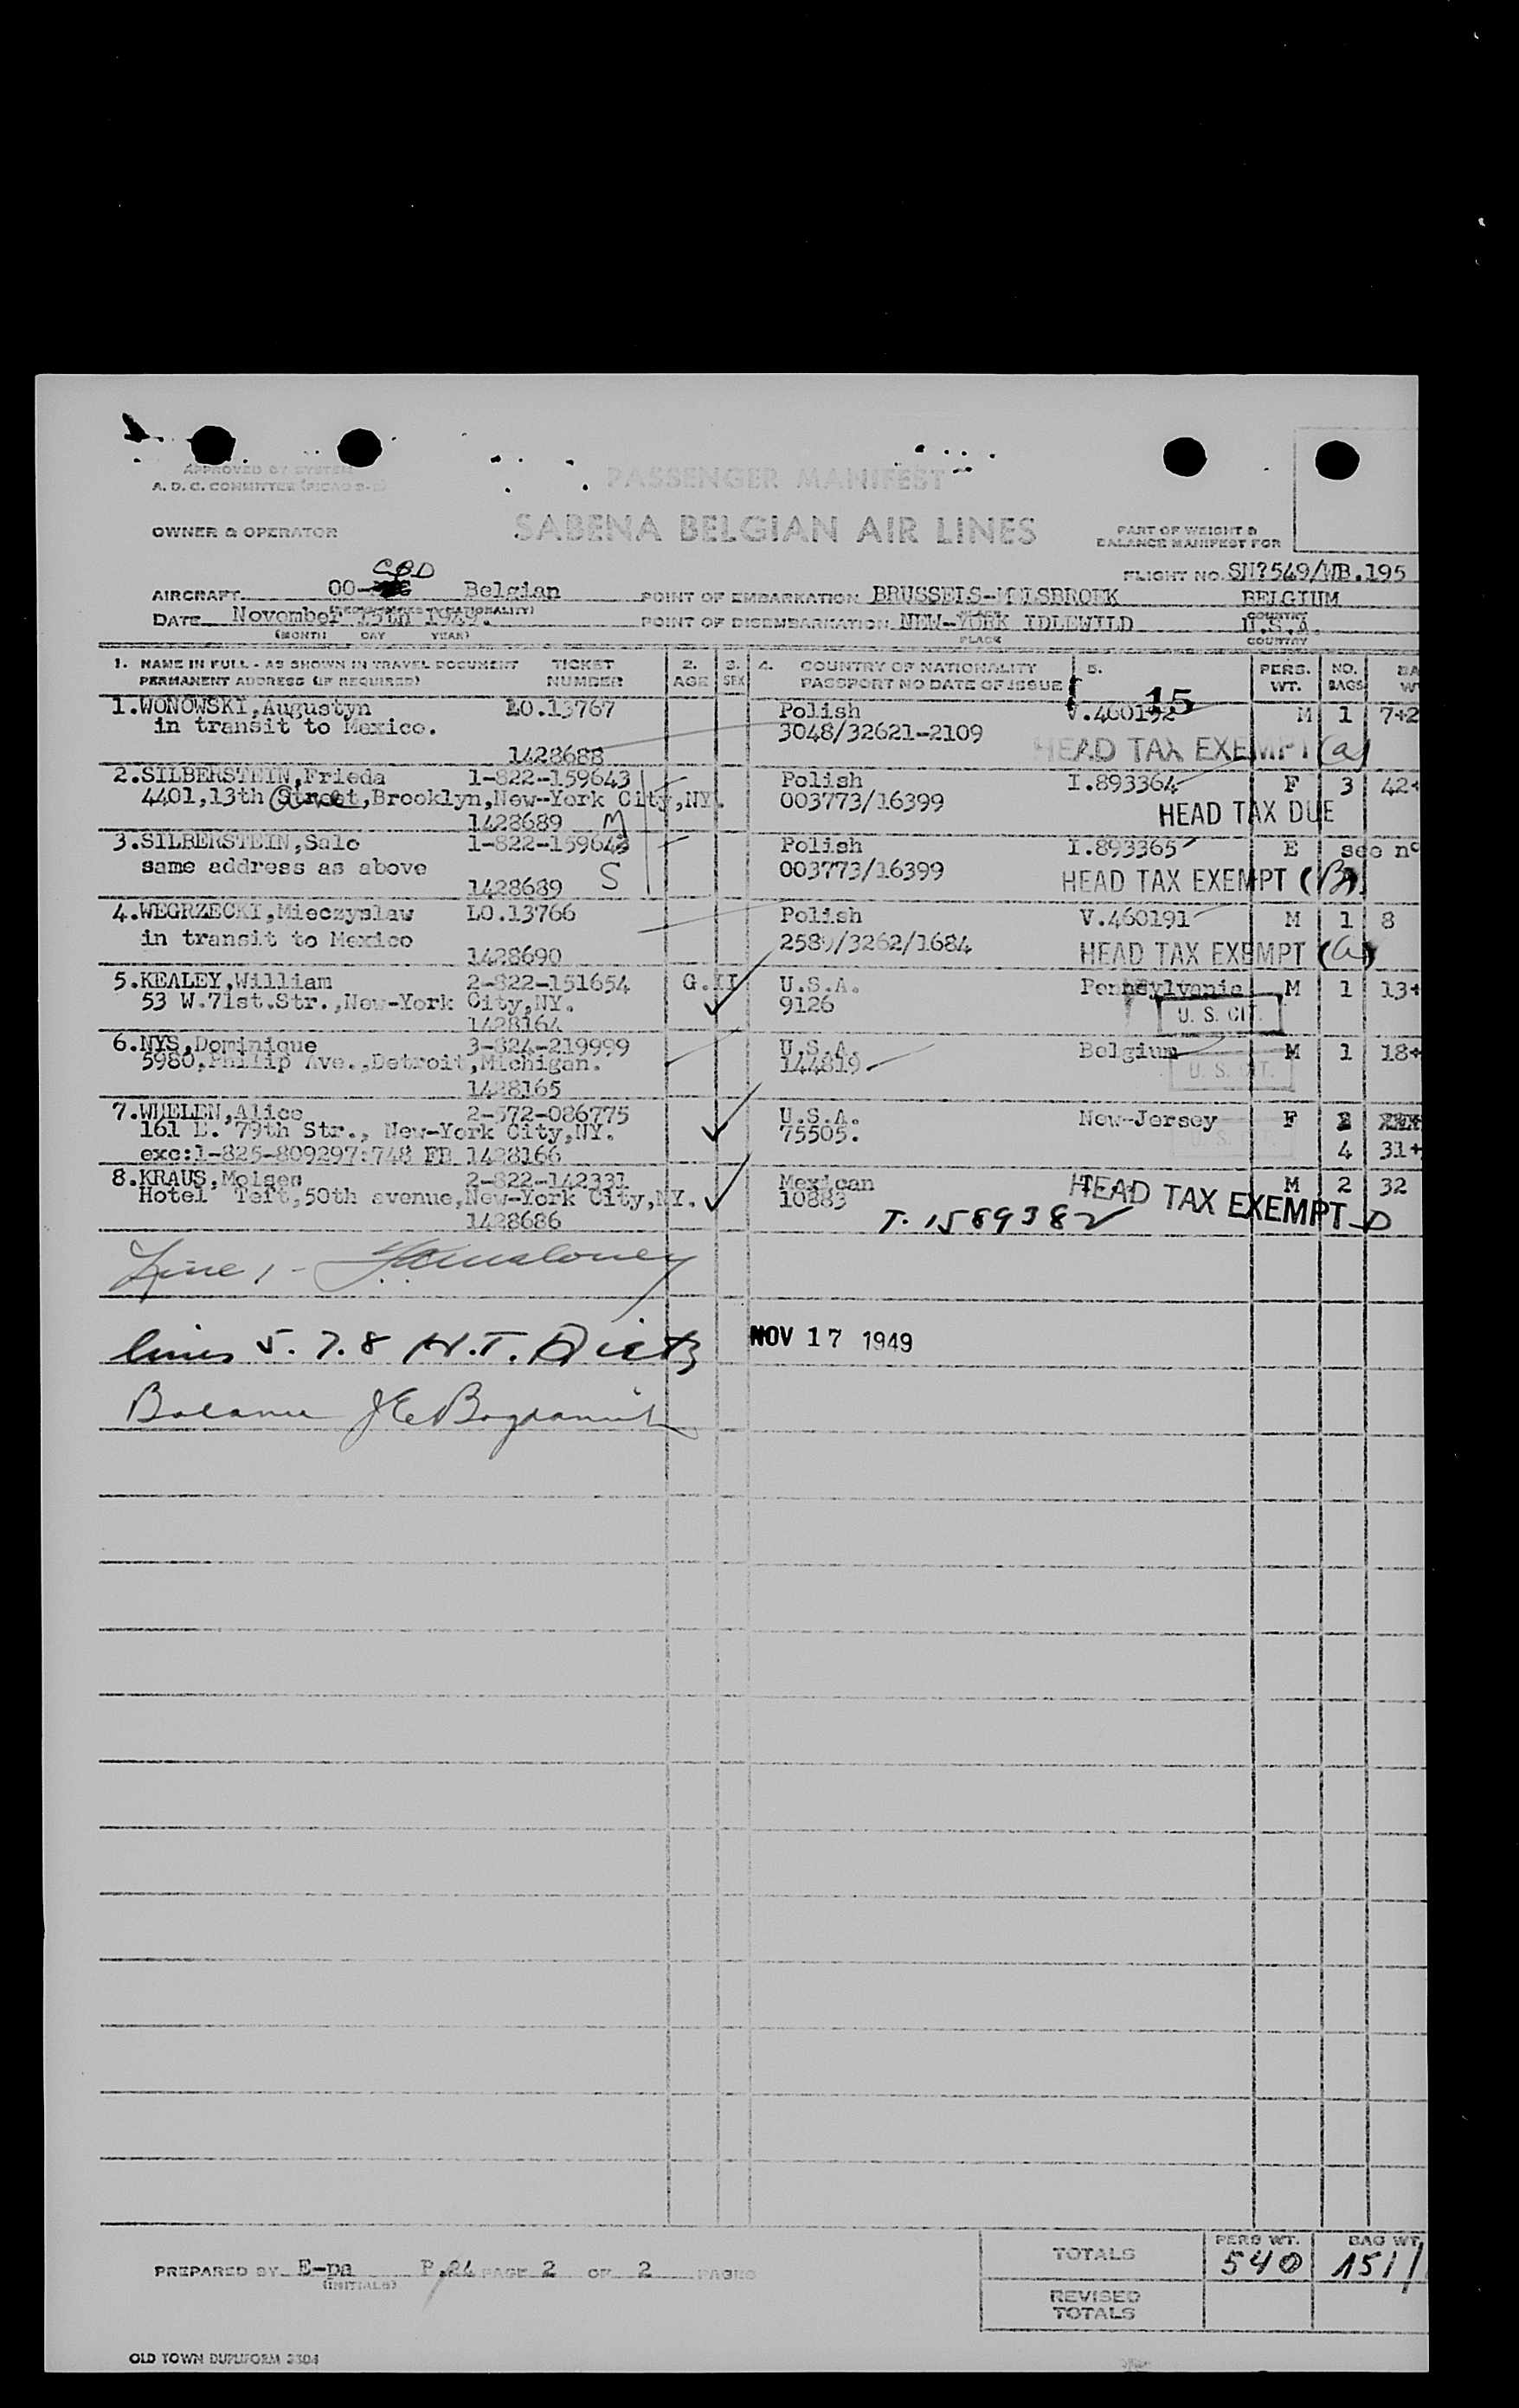 APPROVED BY SYSTEM
A. D. C. COMMITTEE
PASSENGER MANIFEST
OWNER & OPERATOR
SABENA BELGIAN AIR LINES
PART OF WEIGHT &
BALANCE MANIFEST FOR
FLIGHT NO. SN?549/WB.195
CBD
AIRCRAFT OO- Belgian POINT OF EMBARKATION BRUSSELS-MELSBROEK BELGIUM
DATE November 15th 1949. POINT OF DISEMBARKATION NEW-YORK IDLEWILD U.S.A.
(MONTH DAY YEAR) PLACE COUNTRY
1. NAME IN FULL - AS SHOWN IN TRAVEL DOCUMENT TICKET 2. 3. 4. COUNTRY OF NATIONALITY 5. PERS. NO. BA
PERMANENT ADDRESS (IF REQUIRED) NUMBER AGE SEX PASSPORT NO DATE OF ISSUE WT. BAGS W
15
1.WONOWSKI,Augustyn LO.13767 Polish V.460192 M 1 7+2
in transit to Mexico. 3048/32621-2109
1428688 HEAD TAX EXEMPT (a)
2.SILBERSTEIN,Frieda 1-822-159643 Polish I.893364 F 3 42+
4401,13th Street,Brooklyn,New-York City,NY. 003773/16399
Ave
1428689 M HEAD TAX DUE
3.SILBERSTEIN,Salo 1-822-159643 Polish I.893365 E see n°
same address as above 003773/16399
1428689 S HEAD TAX EXEMPT (B)
4.WEGRZECKI,Mieczyslaw LO.13766 Polish V.460191 M 1 8
in transit to Mexico 2589/3262/1684
1428690 HEAD TAX EXEMPT (a)
5.KEALEY,William 2-822-151654 G.II U.S.A. Pennsylvania M 1 13+
53 W.71st.Str.,New-York City,NY. 9126
1428164 U. S. CIT.
6.NYS,Dominique 3-824-219999 U.S.A. Belgium M 1 18+
5980,Philip Ave.,Detroit,Michigan. 144819
1428165 U. S. CIT.
7.WHELEN,Alice 2-572-086775 U.S.A. New-Jersey F
161 E. 79th Str., New-York City,NY. 75505.
U. S. CIT.
exc:1-825-809297:748 FB 1428166 4 31+
8.KRAUS,Moises 2-822-142331 Mexican M 2 32
Hotel Teft,50th avenue,New-York City,NY. 10883 HEAD TAX EXEMPT D
1428686 T. 1589382
Line 1 - Maloney
lines 5. 7. 8 H.T. Dietz NOV 17 1949
Balance
TOTALS PERS WT. BAG WT
540 151/
PREPARED BY E-pa P.24 PAGE 2 OF 2 PAGES
(INITIALS)
REVISED
TOTALS
OLD TOWN DUPLIFORM 3304